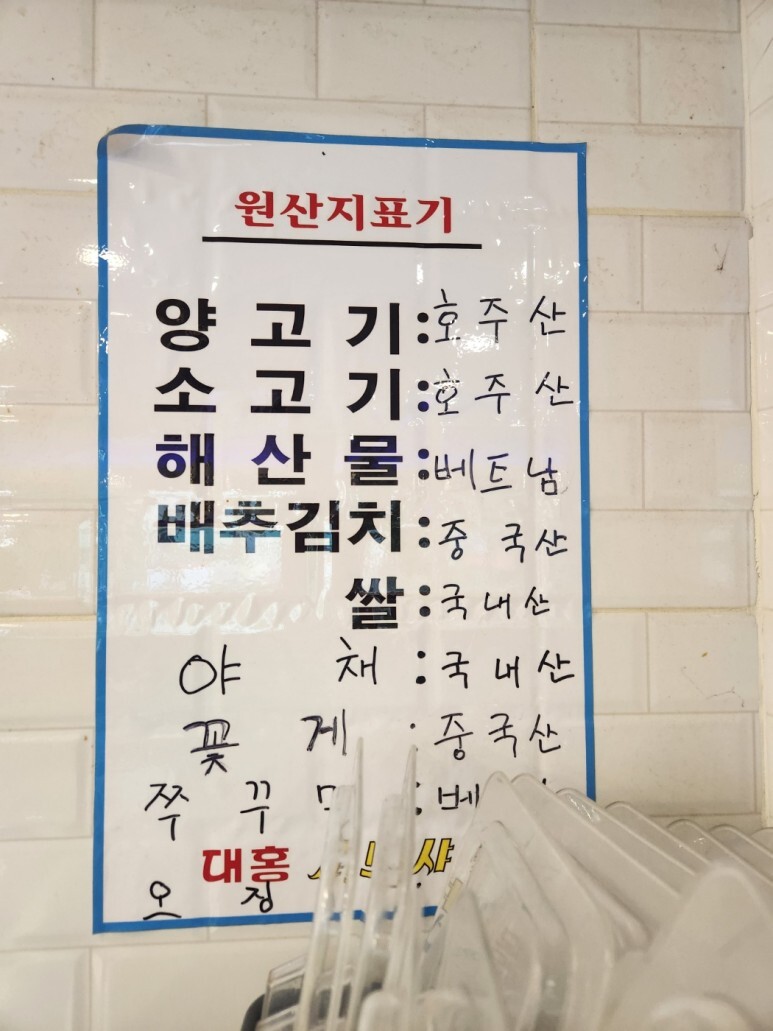 원산지표기
양고기:호주산
소고기:호주산
해산물:베트남
배추김치:중국산
쌀:국내산
야채:국내산
꽃게:중국산
쭈꾸
대홍 샤브샤
오징